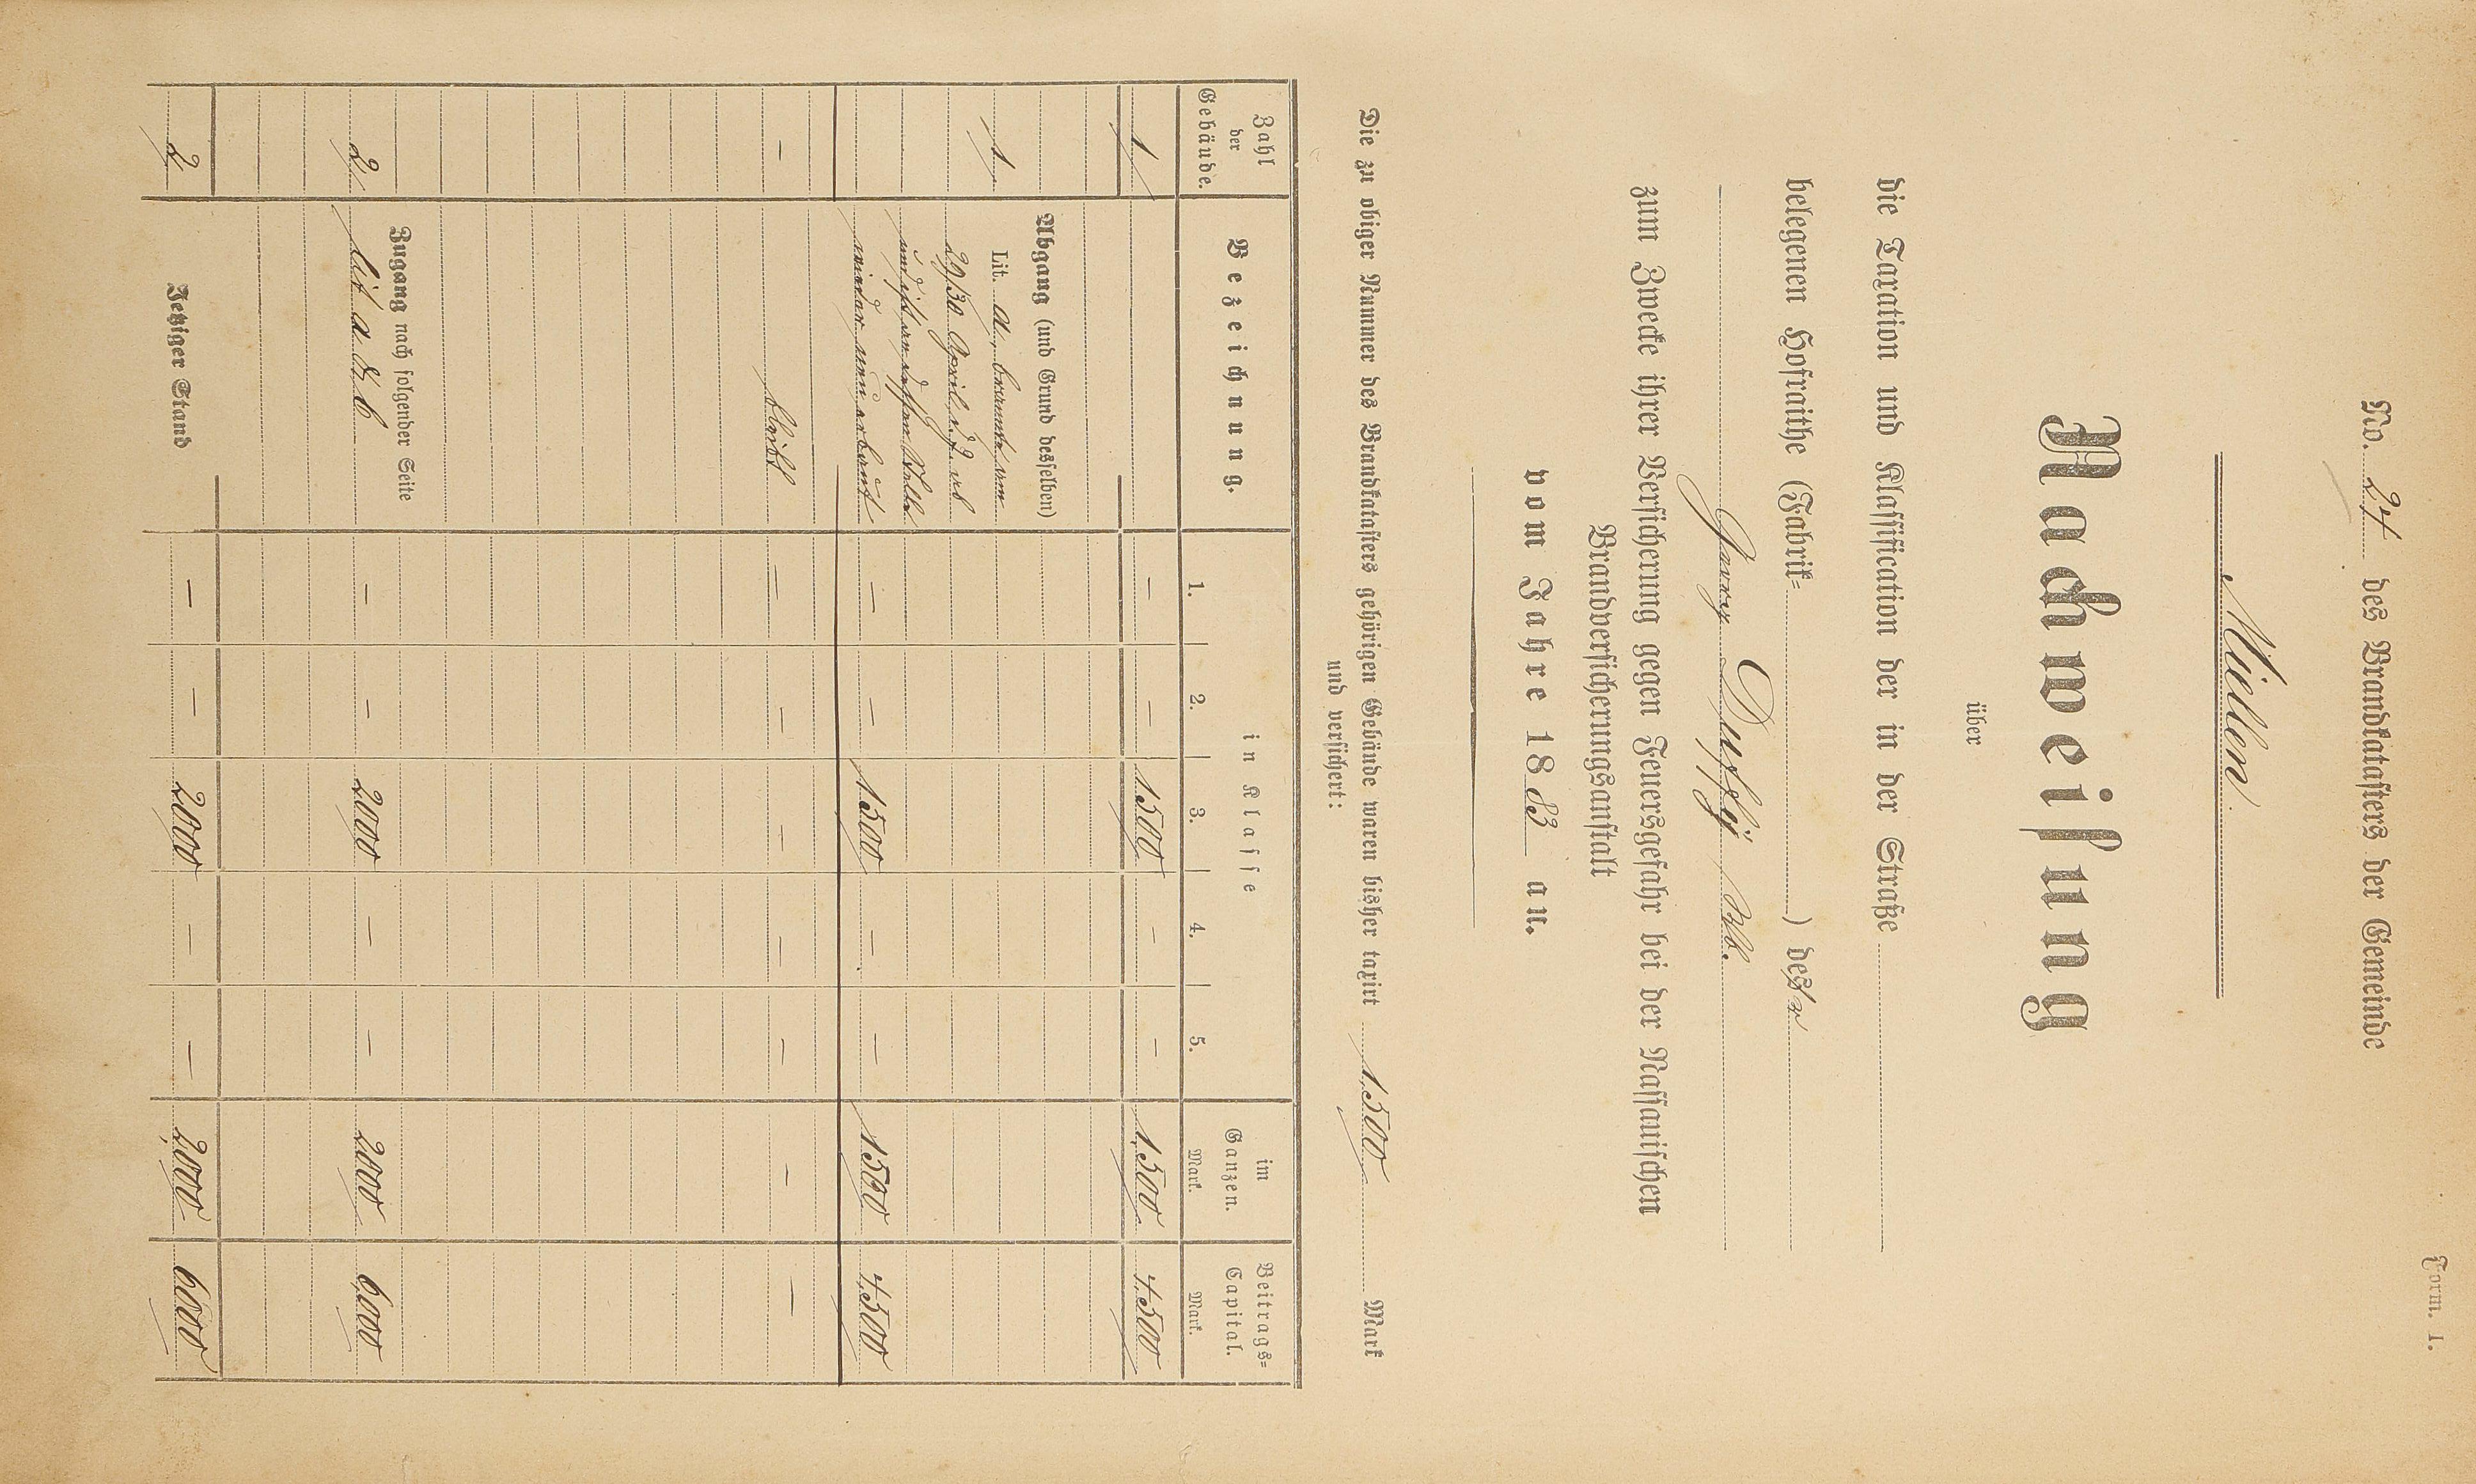 Form. 1.
No. 24 des Brandkatasters der Gemeinde
Miellen
Nachweisung
über
die Taxation und Klassification der in der Straße
belegenen Hofraithe (Fabrik= ) des/r
Georg Wb.
zum Zwecke ihrer Versicherung gegen Feuersgefahr bei der Nassauischen
Brandversicherungsanstalt
vom Jahre 1883 an.
Die zu obiger Nummer des Brandkatasters gehörigen Gebäude waren bisher taxirt 1,500 Mark
und versichert:
Zahl der Gebäude. Bezeichnung. in Klasse im Ganzen. Beitrags= Capital.
1. 2. 3. 4. 5. Mark. Mark.
1 — — 1500 — — 1,500 4,500
Abgang (und Grund desselben)
1 Lit. a, brannte am
29/30 April d. J. ab
und ist an dessen Stelle
wieder neu erbaut — — 1500 — — 1500 4,500
— bleibt — — — — — — —
Zugang nach folgender Seite
2 lit a & b — — 2000 — — 2000 6,000
2 Jetziger Stand — — 2000 — — 2,000 6000